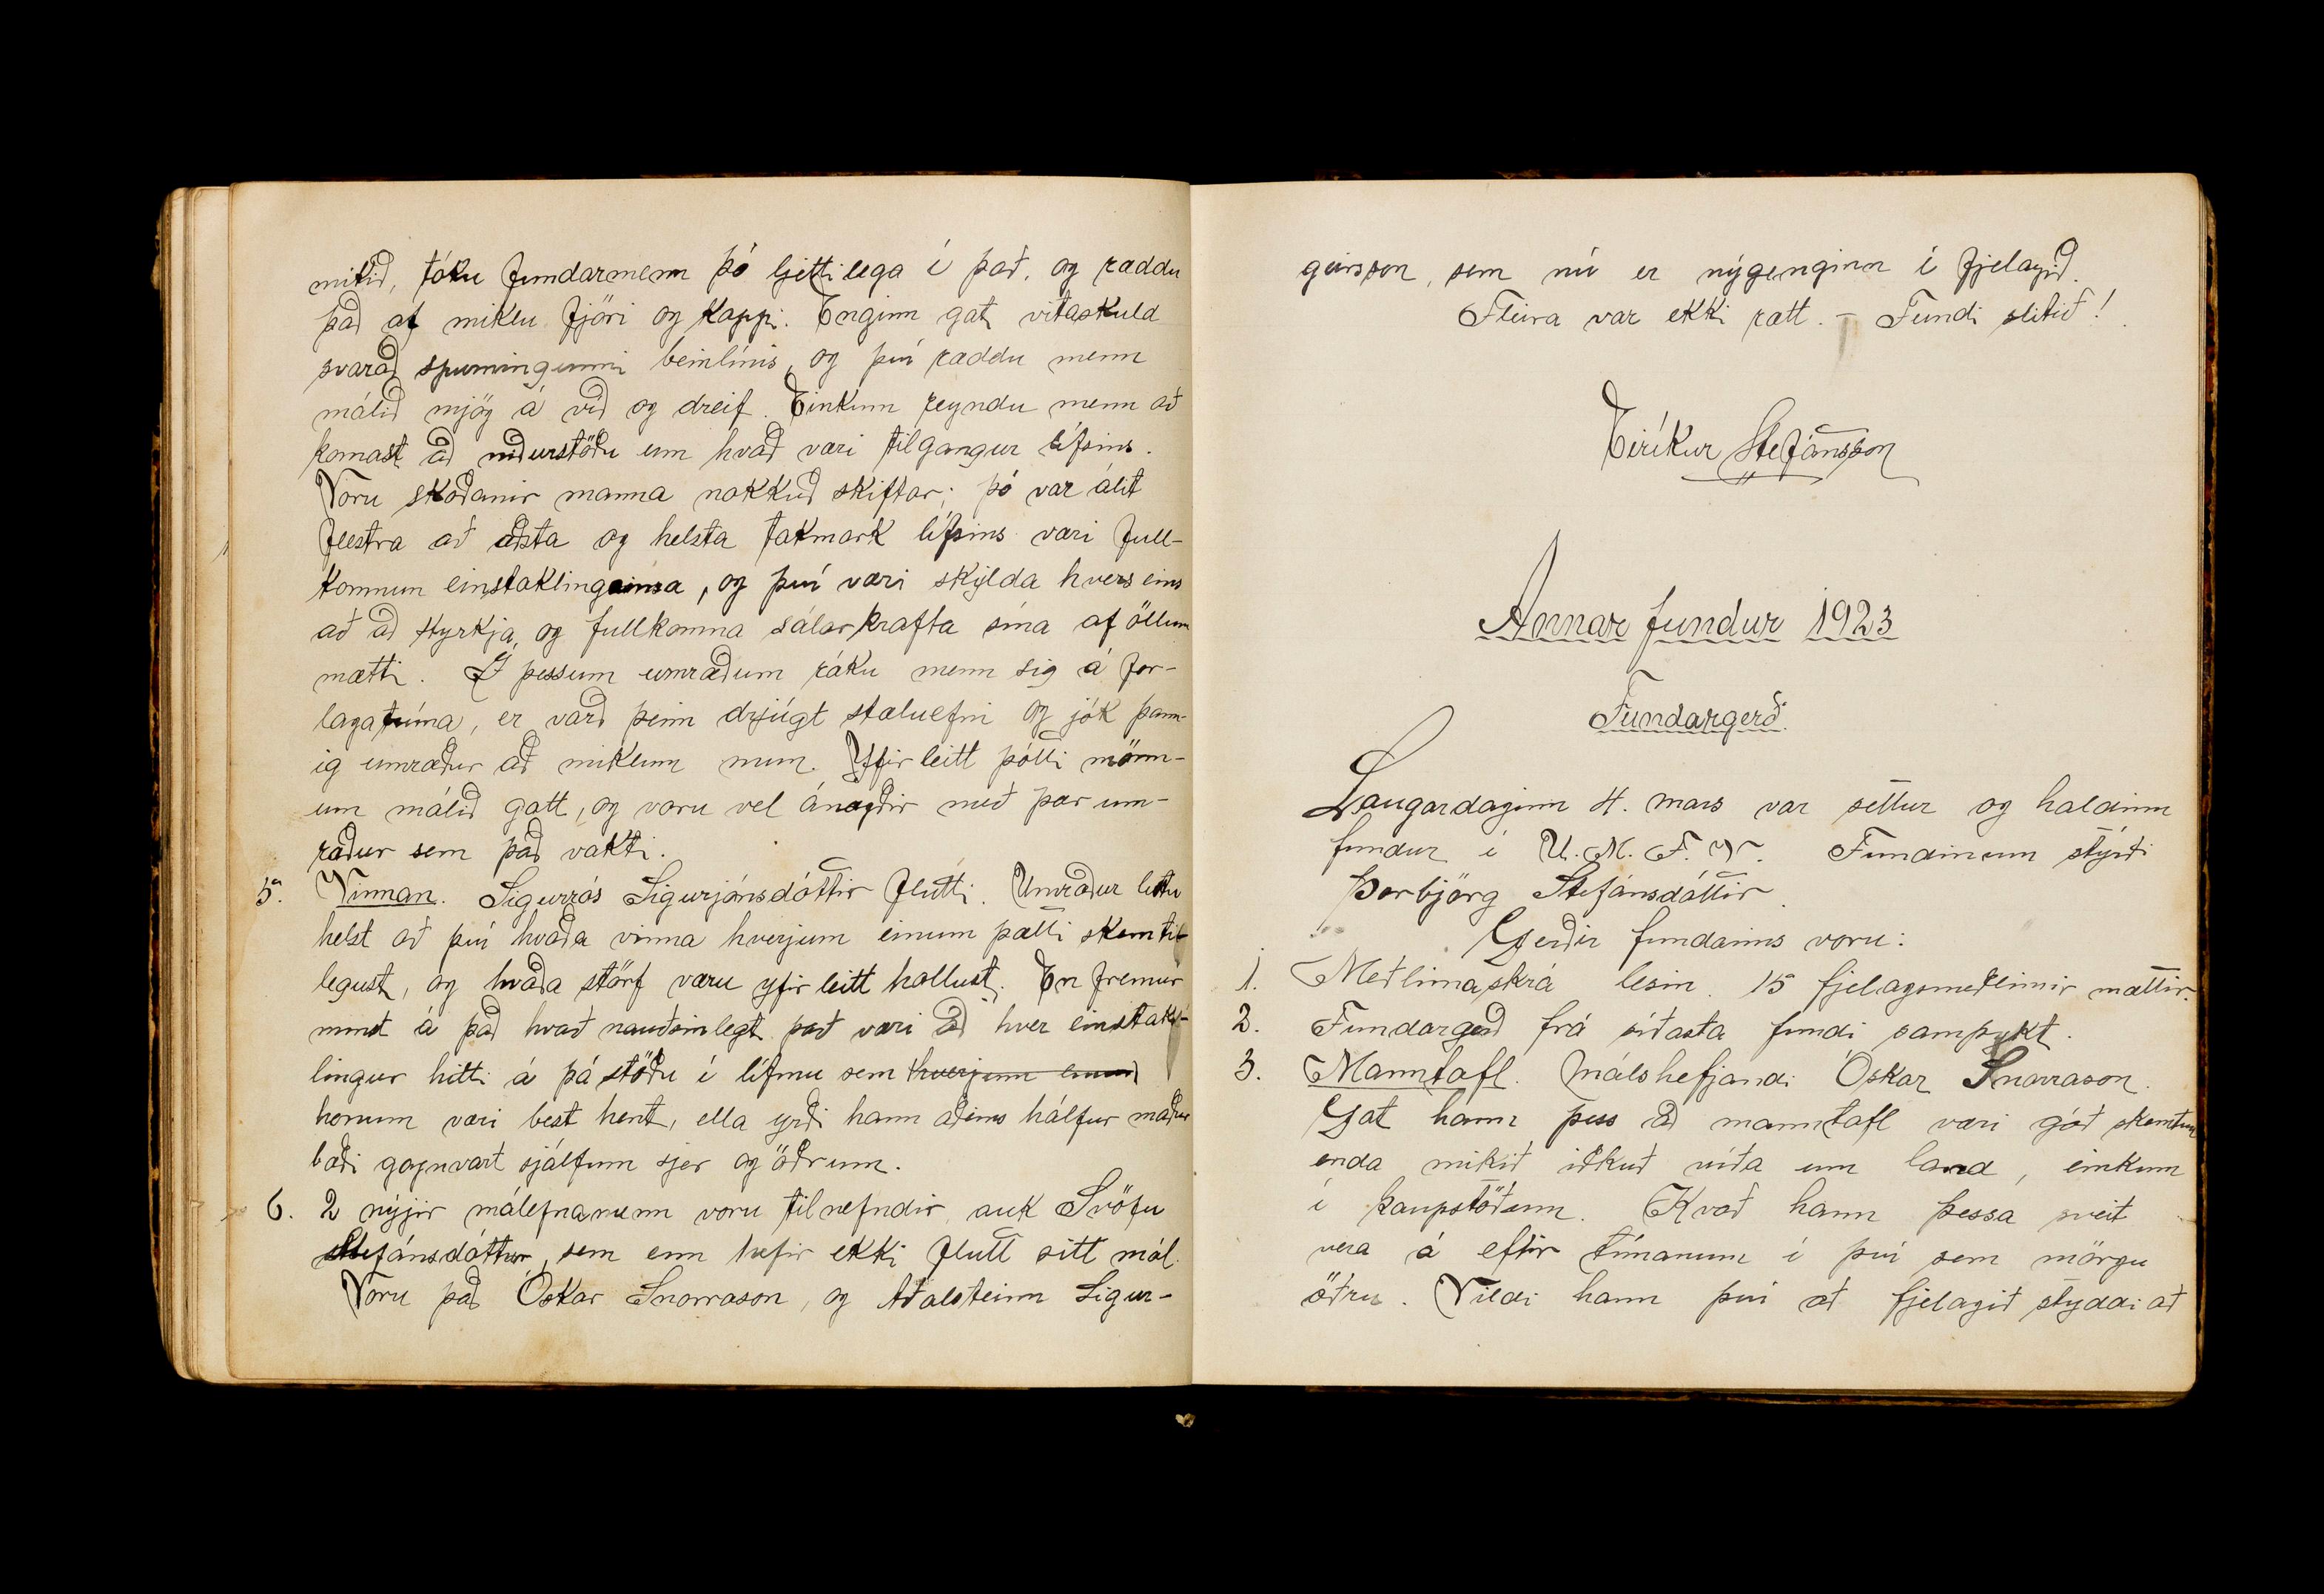 mikið, tóku fundarmenn þó ljettilega í það, og ræddu
það af miklu fjöri og kappi. Enginn gat vitaskuld
svarað spurningunni beinlínis, og því ræddu menn
málið mjög á víð og dreif. Einkum reyndu menn að
komast að niðurstöðu um hvað væri tilgangur lífsins.
Voru skoðanir manna nokkuð skiftar; þó var álit
flestra að æðsta og helsta takmark lífsins væri full-
komnun einstaklingsins, og því væri skylda hvers eins
að að styrkja og fullkomna sálarkrafta sína af öllum
mætti. Í þessum umræðum ráku menn sig á for-
lagatrúna, er varð þeim drjúgt stæluefni og jók þann-
ig umræður að miklum mun. Yfirleitt þótti mönn-
um málið gott, og voru vel ánægðir með þær um-
ræður sem það vakti.
5. Vinnan. Sigurrós Sigurjónsdóttir flutti. Umræður lutu
helst að því hvaða vinna hverjum einum þætti skemti-
legust, og hvaða störf væru yfirleitt hollust. En fremur
minst á það hvað nauðsinlegt það væri að hver einstak-
lingur hitti á þá stöðu í lífinu sem hverjum einum
honum væri best hent, ella yrði hann aðeins hálfur maður
bæði gagnvart sjálfum sjer og öðrum.
6. 2 nýjir málefnamenn voru tilnefndir, auk Svöfu
Stefánsdóttur, sem enn hefir ekki flutt sitt mál.
Voru það Óskar Snorrason, og Aðalsteinn Sigur-
geirsson, sem nú er nýgenginn í fjelagið.
Fleira var ekki rætt. – Fundi slitið!
Eiríkur Stefánsson
Annar fundur 1923
Fundargerð.
Laugardaginn 4. mars var settur og haldinn
fundur í U. M. F. V. Fundinum stýrði
Þorbjörg Stefánsdóttir.
Gerðir fundarins voru:
1. Meðlimaskrá lesin. 15 fjelagsmeðlimir mættir.
2. Fundargerð frá síðasta fundi samþykt.
3. Manntafl. Málshefjandi Óskar Snorrason.
Gat hann þess að manntafl væri góð skemtun
enda mikið iðkuð víða um land, einkum
í kaupstöðum. Kvað hann þessa sveit
vera á eftir tímanum í því sem mörgu
öðru. Vildi hann því að fjelagið styddi að